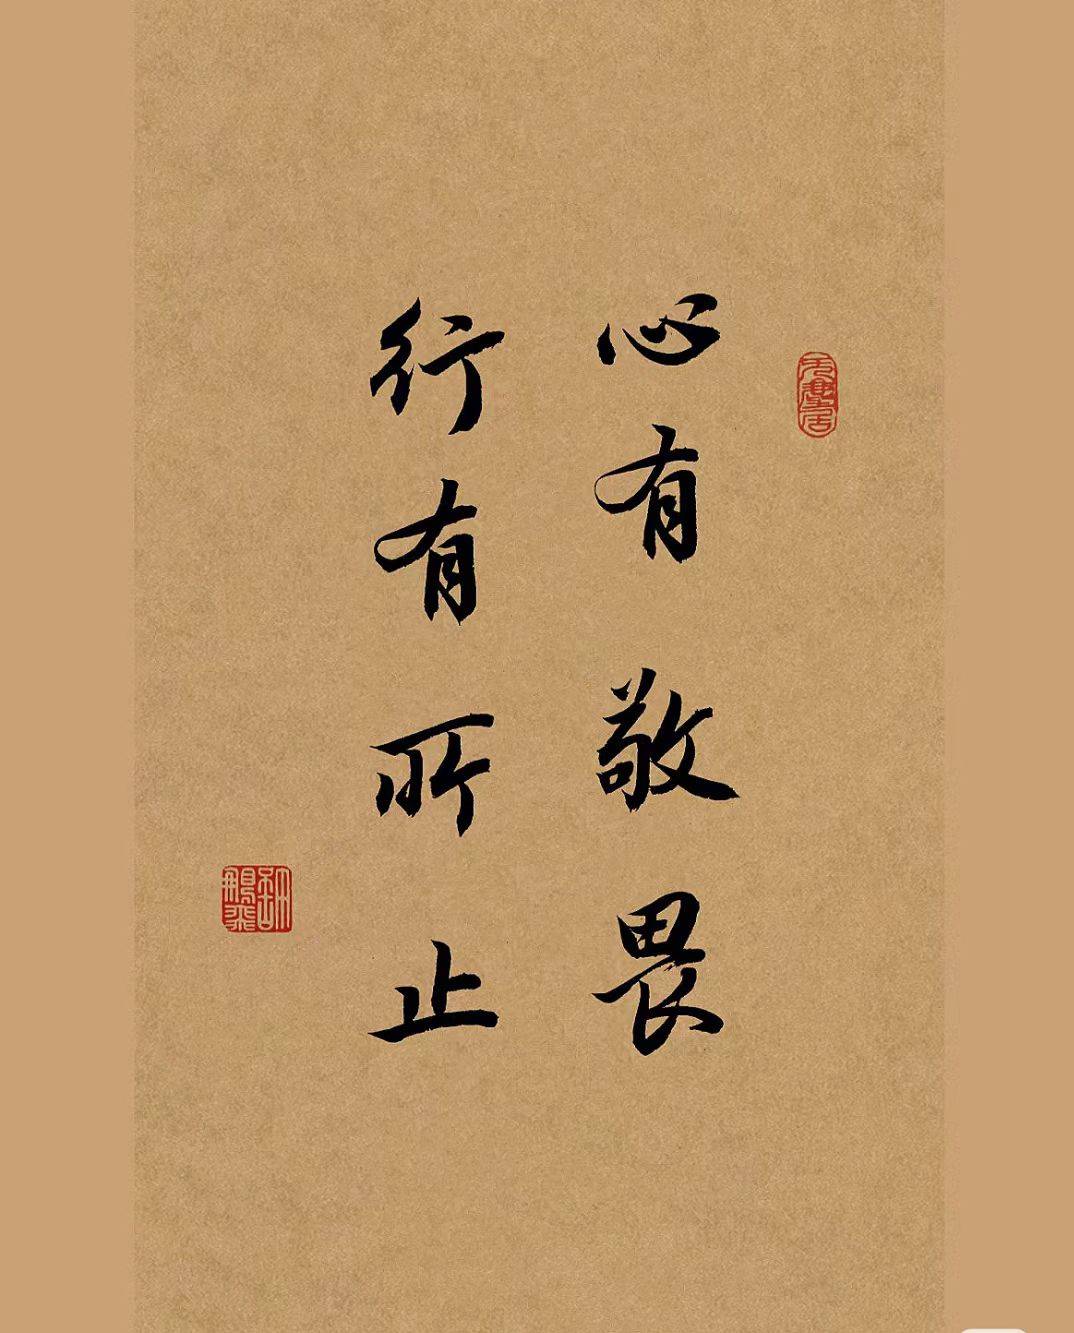 心有敬畏
行有所止